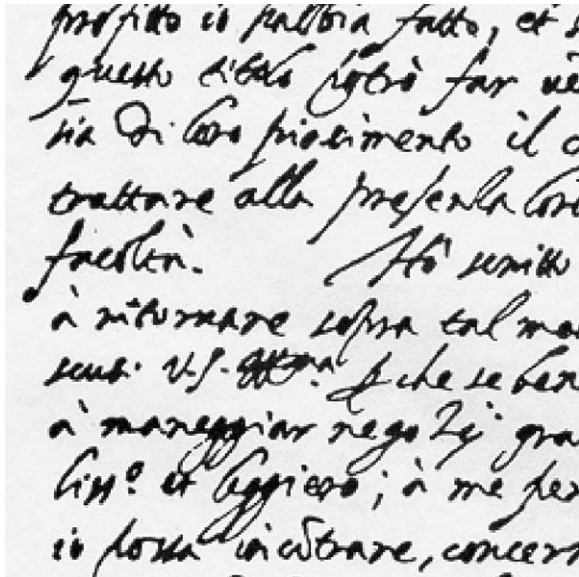 profitto io habbia fatto, et
questo titolo potrò far
sia di loro piacimento il
trattare alla presenza loro
facoltà. Hò scritto
à ritornare sopra tal
scusi V.S. che se ben
à maneggiar negozij gra
liss.º et leggiero; à me per
io possa incōtrare, concern